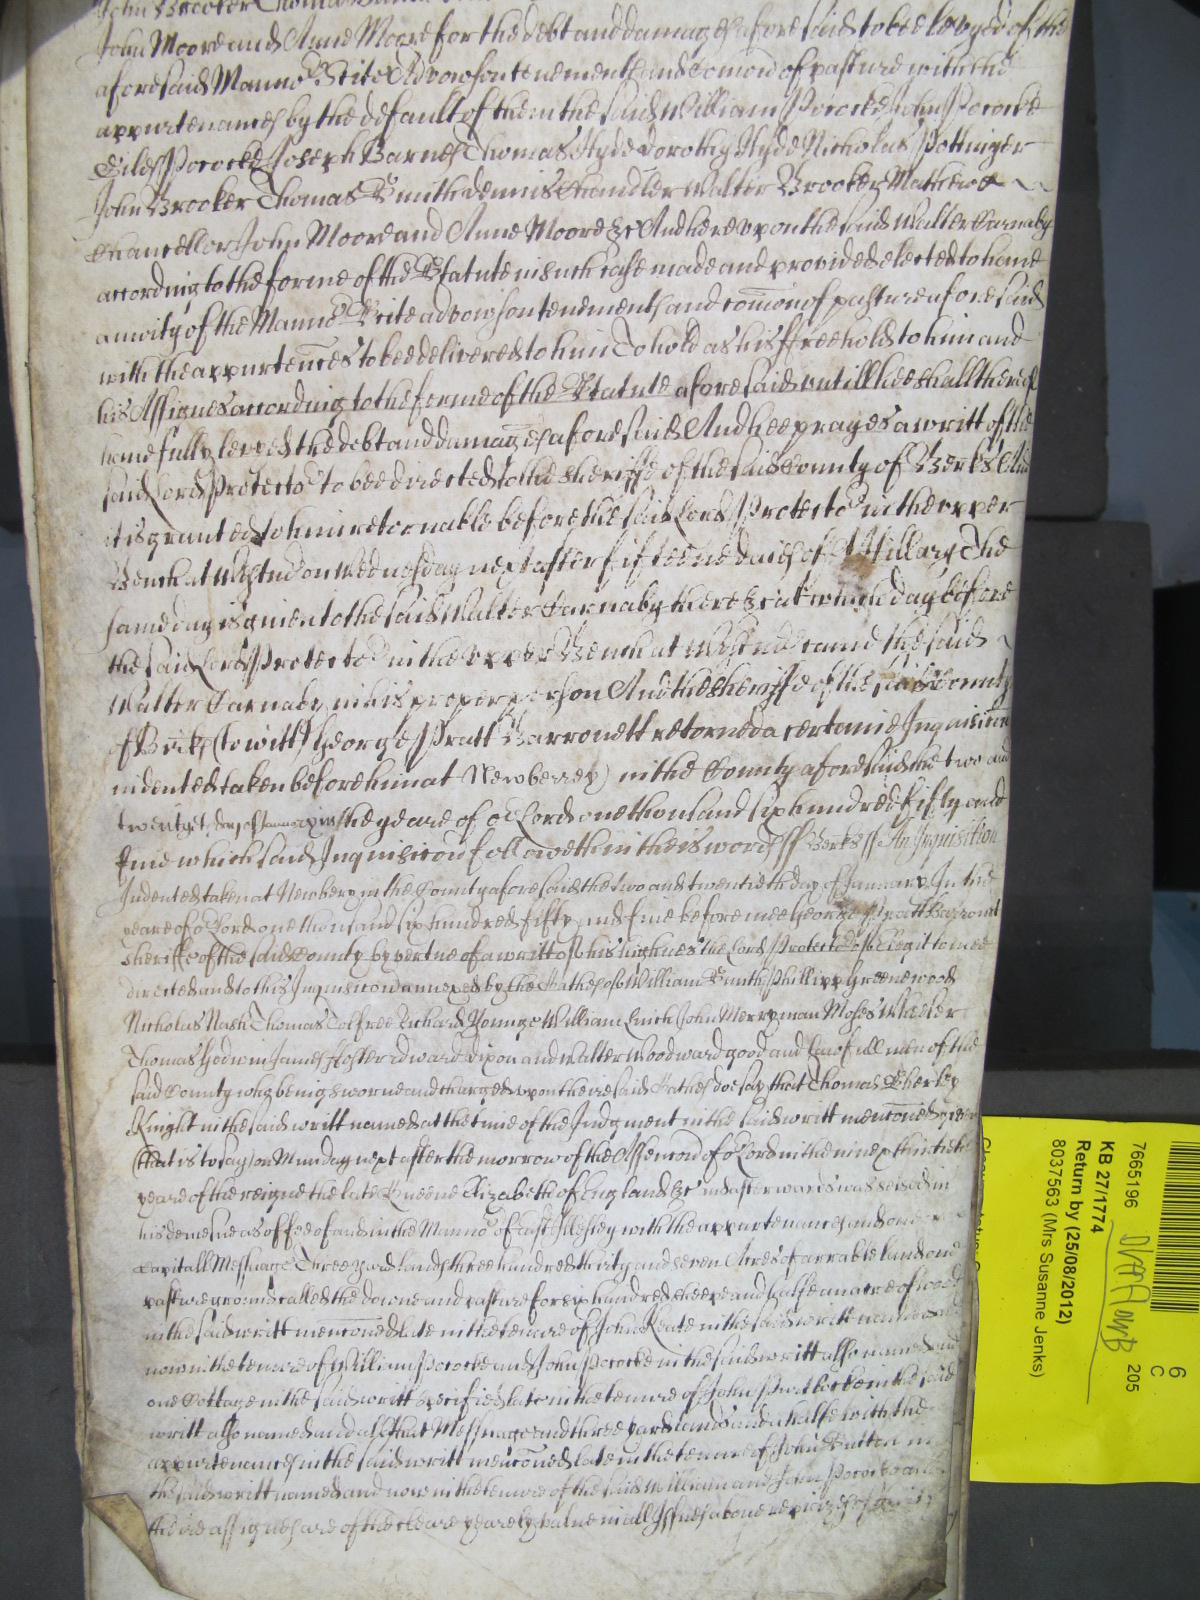 John Brooker Thomas
John Moore and Anne Moore for the debt and damages aforesaid to bee levyed of the
aforesaid Mannor Scite Advowson tenements and Comon of pasture with the
appurtenances by the default of them the said William Pococke John Pococke
Giles Pococke Joseph Barnes Thomas Hyde Dorothy Hyde Nicholas Pottinger
John Brooker Thomas Smith Dennis Chandler Walter Brooker Mathewe
Chancellor John Moore and Anne Moore &c And hereupon the said Walter Carnaby
according to the forme of the Statute in such case made and provided elected to have
a moity of the Mannor Scite advowson tenements and comon of pasture aforesaid
with the appurtences to bee delivered to him To hold as his ffreehold to him and
his Assignes according to the forme of the Statute aforesaid untill hee shall thereof
have fully levied the debt and damages aforesaid And hee prayes a writt of the
said Lord Protector to bee directed to the Sheriffe of the said County of Berks And
it is granted to him retornable before the said Lord Protector in the upper
Bench at Westmr on Wednesday next after fifteene daies of St Hillary The
same day is given to the said Walter Carnaby there &c at which day before
the said Lord Protector in the upper Bench at Westmr came the said
Walter Carnaby in his proper person And the Sheriffe of the said County
of Berks (to witt) George Pratt Barronett retorned a certaine Inquisicon
indented taken before him at Newberrey in the County aforesaid the two and
twentyet day of January in the yeare of or Lord one thousand six hundred fifty and
five which said Inquisicon followeth in theis words ss Berks ss An Inquisition
Indented taken at Newbery in the County aforesaid the two and twentieth day of January In the
yeare of or Lord one thousand six hundred fifty and five before mee George Pratt Barronet
Sheriffe of the said County by vertue of a writt of his highnes the Lord Protector of Elegit to mee
directed and to this Inquisicon annexed by the Oathes of William Smith Phillipp Greenewood
Nicholas Nash Thomas Tolfree Richard Younge William Luick John Merryman Moses Wheeler
Thomas Godwin James Edward Dixon and Walter Woodward good and lawfull men of the
said County who being sworne and charged upon theire said Oathes doe say that Thomas Sherley
Knight in the said writt named at the time of the Judgment in the said writt menconed given
(that is to say) on Munday next after the morrow of the Assencon of or Lord in the nine &
yeare of the reigne the late Queene Elizabeth of England &c and afterwards was seised in
his demesne as of fee of and in the Mannor of East Illesley with the appurtenances and one
Capitall Messuage Three yard lands three hundred thirty and seven Acres of arrable land and
pasture ground called the downe and pasture for six hundred sheepe and halfe an acre of wood
in the said writt menconed late in the tenure of John Keate in the said writt named and
now in the tenure of William Pococke and John Pococke in the said writt also named and
one Cottage in the said writt specified late in the tenure of John in the said
writt also named and all that Messuage and three yard lands and a halfe with the
appurtenances in the said writt menconed late in the tenure of John Sutton in
the said writt named and now in the tenure of the said William and John Pococke and
theire assignes are of the cleare yearely value in all Issues above reprizes of
7665196
205
6
C
KB 27/1774
Return by (25/08/2012)
8037563 (Mrs Susanne Jenks)